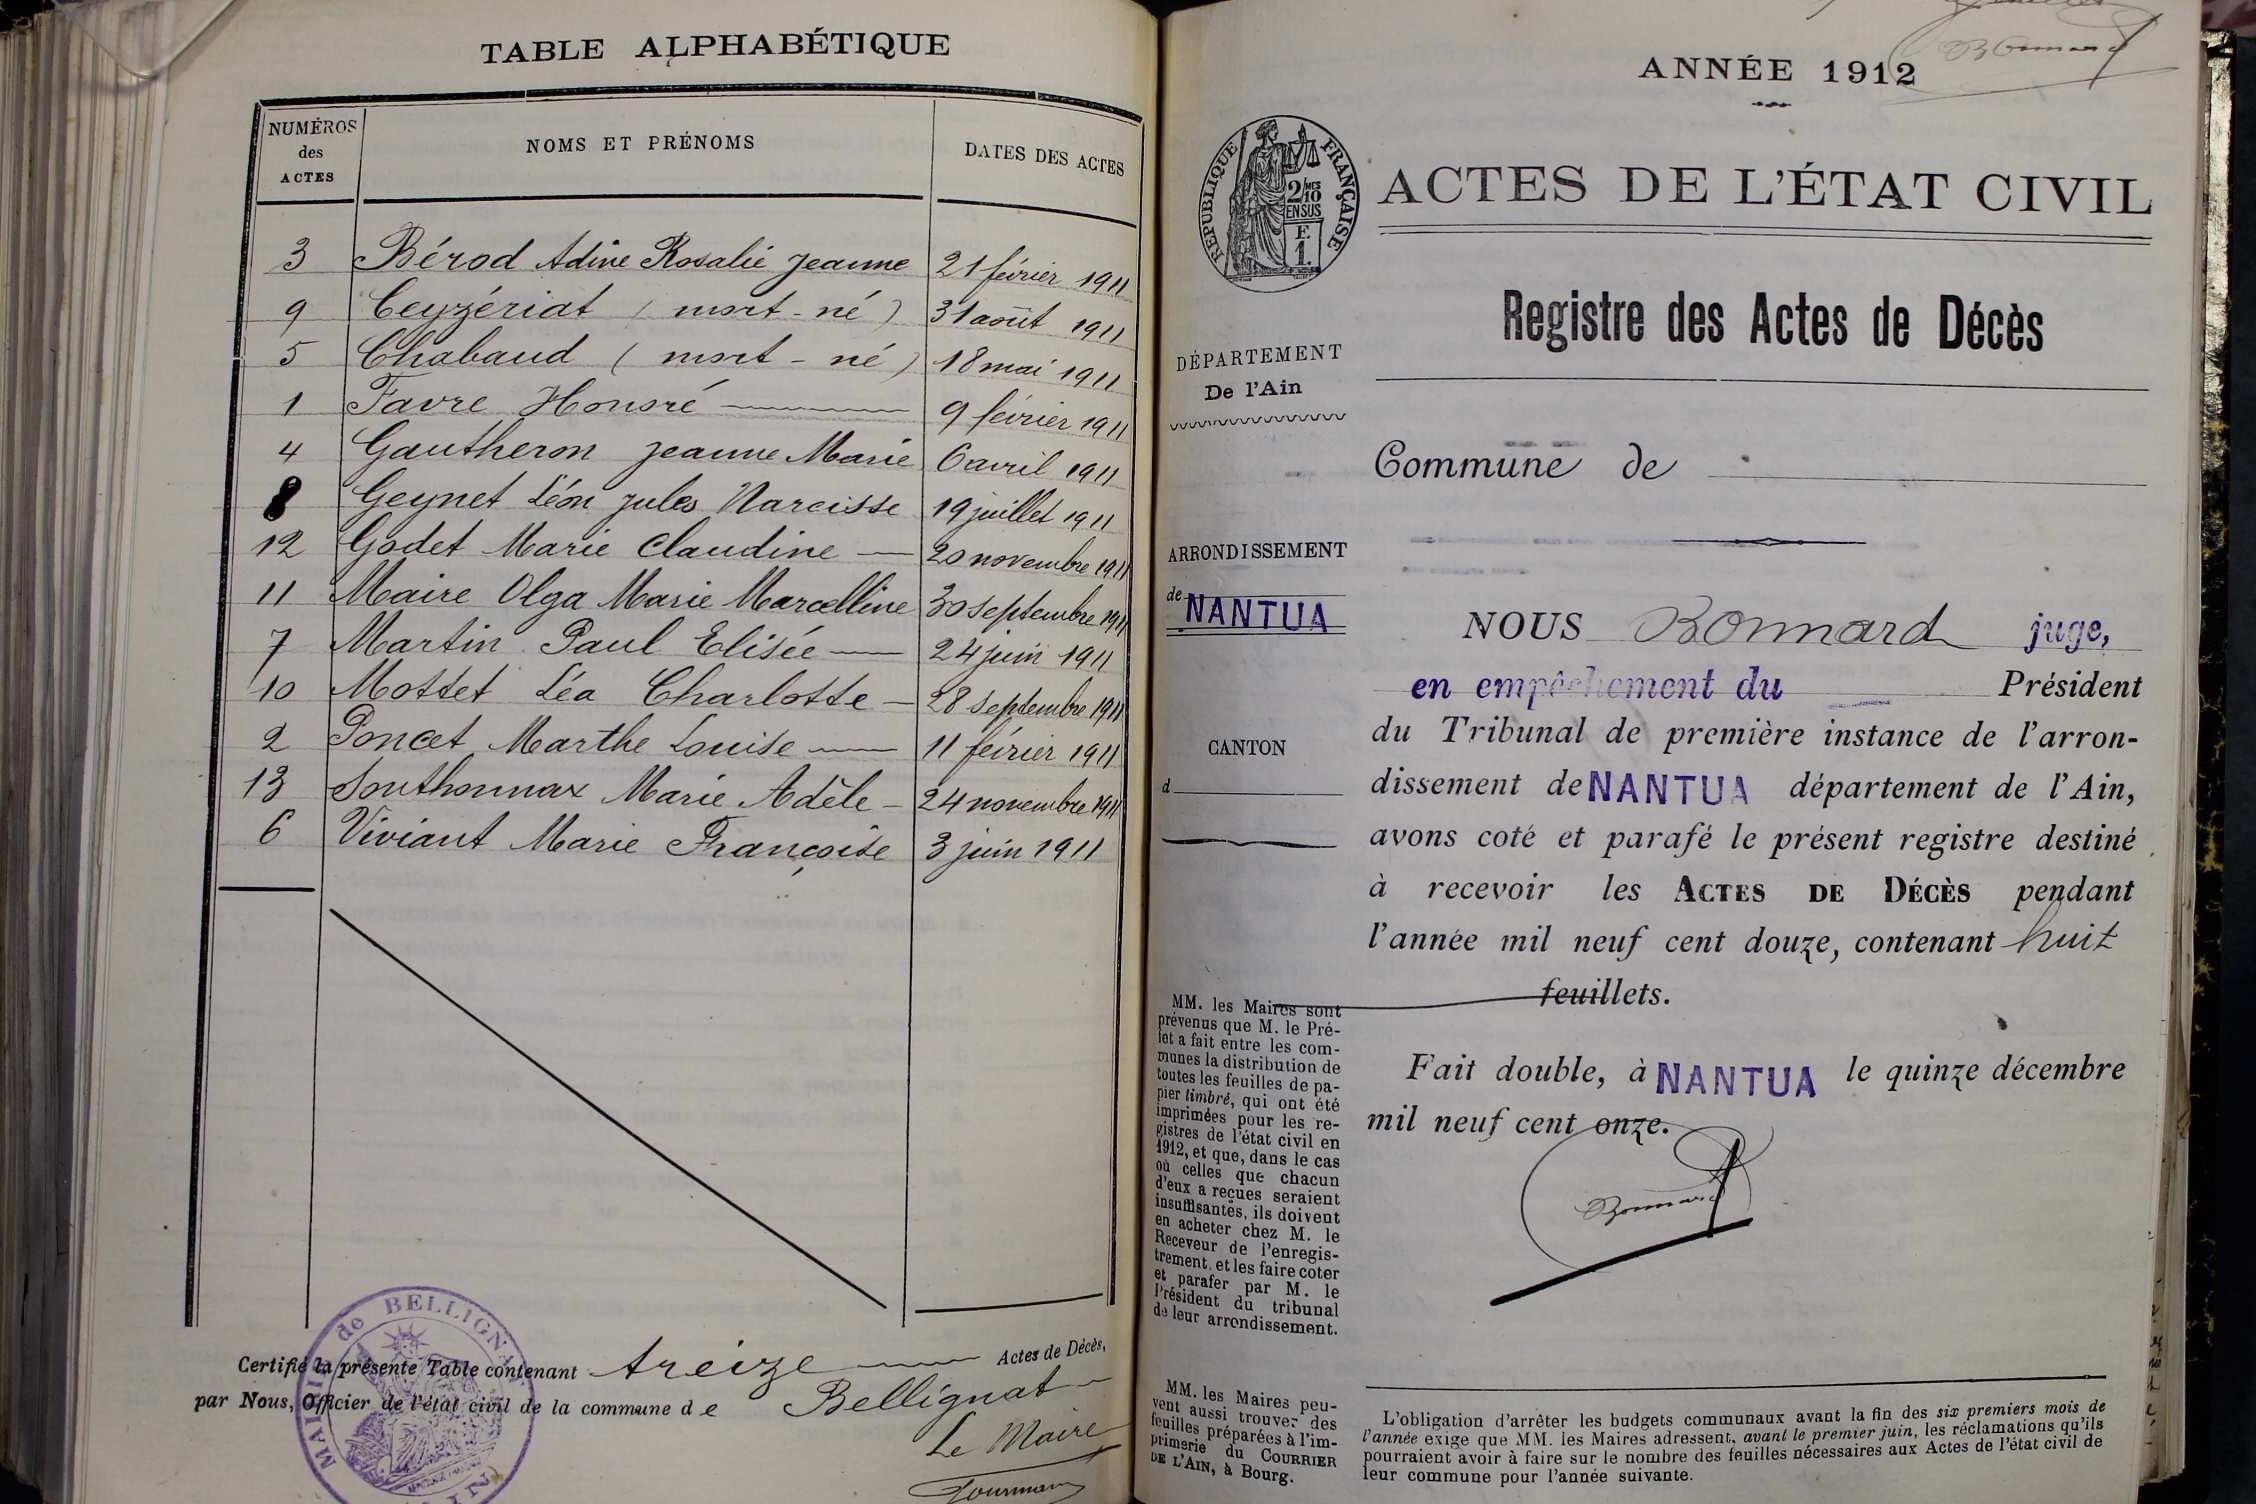 TABLE ALPHABÉTIQUE
NUMÉROS des ACTES
NOMS ET PRÉNOMS
DATES DES ACTES
3 Bérod Adine Rosalie Jeanne 21 février 1911
9 Ceyzériat (mort-né) 31 août 1911
5 Chabaud (mort-né) 18 mai 1911
1 Favre Honoré 9 février 1911
4 Gautheron Jeanne Marie 6 avril 1911
8 Geynet Léon Jules Narcisse 19 juillet 1911
12 Godet Marie Claudine 20 novembre 1911
11 Maire Olga Marie Marcelline 30 septembre 1911
7 Martin Paul Elisée 24 juin 1911
10 Mottet Léa Charlotte 28 septembre 1911
2 Poncet Marthe Louise 11 février 1911
13 Southonnax Marie Adèle 24 novembre 1911
6 Viviant Marie Françoise 3 juin 1911
Certifié la présente Table contenant treize Actes de Décès,
par Nous, Officier de l'état civil de la commune de Bellignat
Le Maire
MAIRIE de BELLIGNAT (AIN)
Bonnard
ANNÉE 1912
RÉPUBLIQUE FRANÇAISE
2/10 MES
EN SUS
F.
1.
ACTES DE L'ÉTAT CIVIL
Registre des Actes de Décès
DÉPARTEMENT
De l'Ain
Commune de
ARRONDISSEMENT
de NANTUA
CANTON
d
NOUS Bonnard juge,
en empêchement du Président
du Tribunal de première instance de l'arron-
dissement de NANTUA département de l'Ain,
avons coté et parafé le présent registre destiné
à recevoir les ACTES DE DÉCÈS pendant
l'année mil neuf cent douze, contenant huit
feuillets.
Fait double, à NANTUA le quinze décembre
mil neuf cent onze.
Bonnard
MM. les Maires sont
prévenus que M. le Pré-
fet a fait entre les com-
munes la distribution de
toutes les feuilles de pa-
pier timbré, qui ont été
imprimées pour les re-
gistres de l'état civil en
1912, et que, dans le cas
où celles que chacun
d'eux a reçues seraient
insuffisantes, ils doivent
en acheter chez M. le
Receveur de l'enregis-
trement, et les faire coter
et parafer par M. le
Président du tribunal
de leur arrondissement.
MM. les Maires peu-
vent aussi trouver des
feuilles préparées à l'im-
primerie du COURRIER
DE L'AIN, à Bourg.
L'obligation d'arrêter les budgets communaux avant la fin des six premiers mois de
l'année exige que MM. les Maires adressent, avant le premier juin, les réclamations qu'ils
pourraient avoir à faire sur le nombre des feuilles nécessaires aux Actes de l'état civil de
leur commune pour l'année suivante.